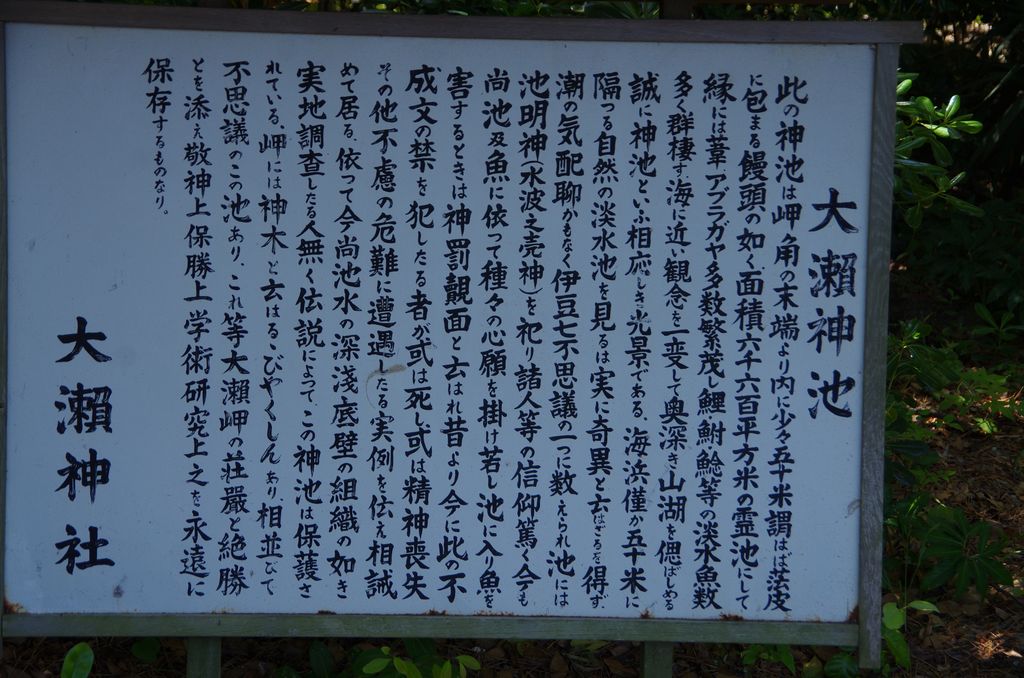 大瀬神池
此の神池は岬角の末端より内に少々五十米謂はば薄皮
に包まる饅頭の如く面積六千六百平方米の霊池にして
縁には葦アブラガヤ多多数繁茂し鯉鮒鯰等の淡水魚数
多く群棲す海に近い観念を一変して奥深き山湖を偲ばしめる
誠に神池といふ相応しき光景である、海浜僅か五十米に
隔つる自然の淡水池を見るは実に奇異と云はざるを得ず
潮の気配聊かもなく伊豆七不思議の一つに数えられ池には
池明神(水波之売神)を祀り諸人等の信仰篤く今も
尚池及魚に依つて種々の心願を掛け若し池に入り魚を
害するときは神罰覿面と云はれ昔より今に此の不
成文の禁を犯したる者が或は死し或は精神喪失
その他不慮の危難に遭遇したる実例を伝え相誡
めて居る、依つて今尚池水の深淺底壁の組織の如き
実地調査したる人無く伝説によつて、この神池は保護さ
れている、岬には神木と云はるゝびやくしんあり、相並びて
不思議のこの池あり、これ等大瀬岬の荘厳と絶勝
とを添え敬神上保勝上学術研究上之を永遠に
保存するものなり。
大瀬神社